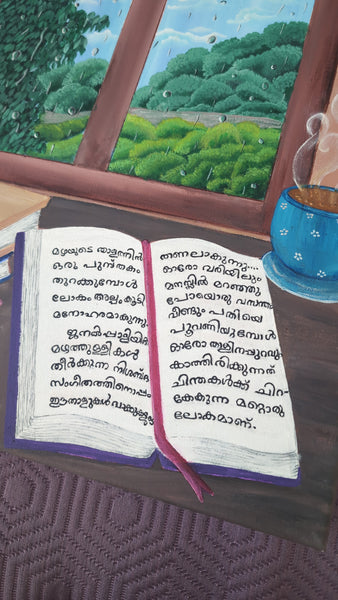 മഴയുടെ താളത്തിൽ
ഒരു പുസ്തകം
തുറക്കുമ്പോൾ
ലോകം അല്പം കൂടി
മനോഹരമാകുന്നു.
ജനൽപ്പാളിയിൽ
മഴത്തുള്ളികൾ
തീർക്കുന്ന നിശബ്ദ
സംഗീതത്തിനൊപ്പം
ഈ താളുകൾ
തണലാകുന്നു....
ഓരോ വരിയിലും
മനസ്സിൽ മറഞ്ഞു
പോയൊരു വസന്തം
വീണ്ടും പതിയെ
പൂവണിയുമ്പോൾ
ഓരോ താളിനപ്പുറവും
കാത്തിരിക്കുന്നത്
ചിന്തകൾക്ക് ചിറ-
കേകുന്ന മറ്റൊരു
ലോകമാണ്.